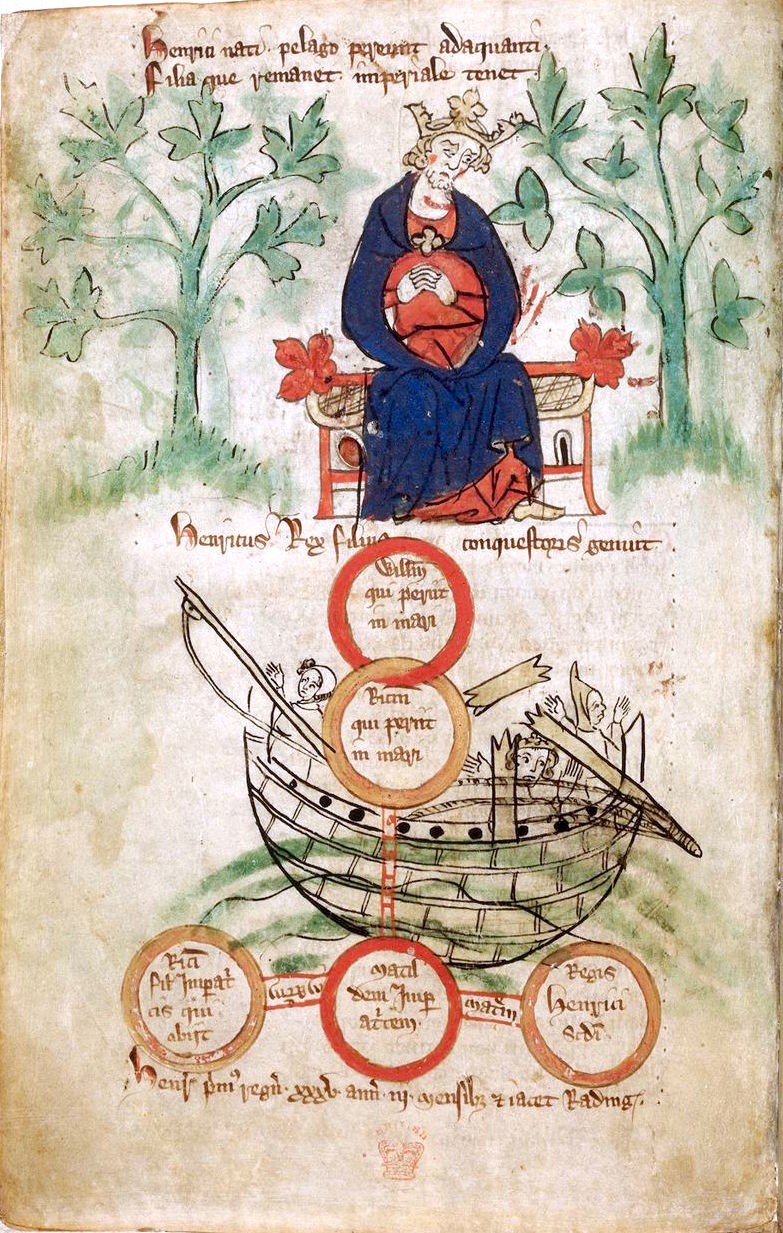 Henrici nati pelago pereunt adaquanti
Filia que remanet imperiale tenet
Henricus Rex filius conquestoris genuit
Willm
qui periit
in mari
Ricm
qui periit
in mari
Rici
fil Imperat
cis qui
obiit
matil
dem Imp
atcem
matrem
Regis
Henrici
Scdi
Henr pmus regn xxxv ann iij mensibz & iacet Rading